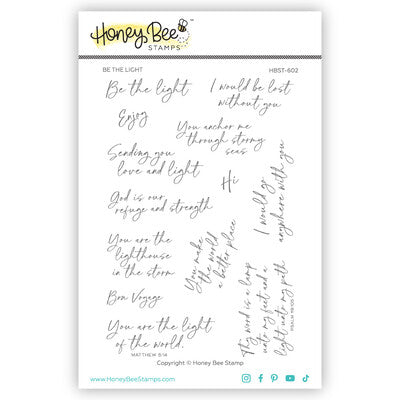 Honey Bee
STAMPS
BE THE LIGHT
HBST-602
Be the light
I would be lost
without you
Enjoy
You anchor me
through stormy
seas
Sending you
love and light
Hi
God is our
refuge and strength
I would go
anywhere with you
You are the
lighthouse
in the storm
You make
the world
a better place
Bon Voyage
Thy word is a lamp
unto my feet and a
light unto my path
PSALM 119:105
You are the light
of the world.
MATTHEW 5:14
Copyright © Honey Bee Stamp
www.HoneyBeeStamps.com